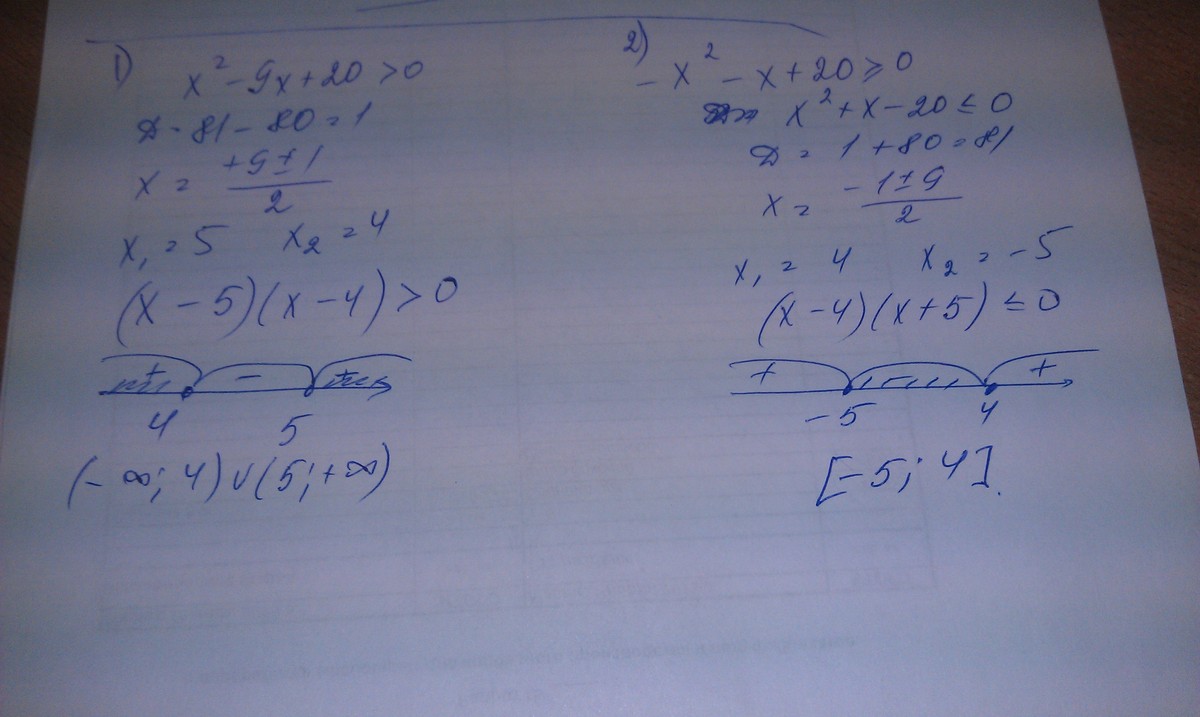 1)
x² - 9x + 20 > 0
D = 81 - 80 = 1
x = (+9 ± 1)/2
x₁ = 5 x₂ = 4
(x - 5)(x - 4) > 0
+ - +
4 5
(-∞; 4) ∪ (5; +∞)
2)
-x² - x + 20 ≥ 0
x² + x - 20 ≤ 0
D = 1 + 80 = 81
x = (-1 ± 9)/2
x₁ = 4 x₂ = -5
(x - 4)(x + 5) ≤ 0
+ - +
-5 4
[-5; 4].